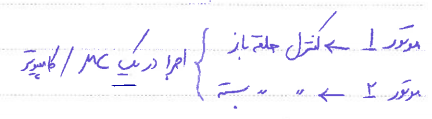 موتور 1 ← کنترل حلقه باز
موتور ۲ ← " " بسته
} اجرا در یک μC / کامپیوتر